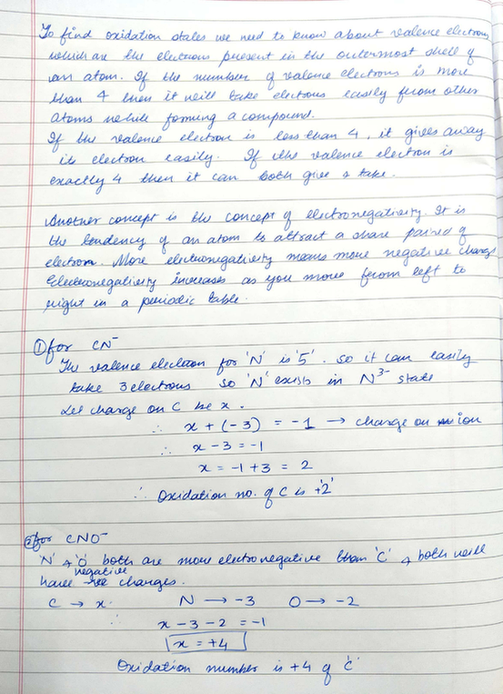 To find oxidation states we need to know about valence electrons
which are the electrons present in the outermost shell of
an atom. If the number of valence electrons is more
than 4 then it will take electrons easily from other
atoms while forming a compound.
If the valence electron is less than 4, it gives away
its electron easily. If the valence electron is
exactly 4 then it can both give & take.
Another concept is the concept of electronegativity. It is
the tendency of an atom to attract a share paired of
electron. More electronegativity means more negative charge
Electronegativity increases as you move from left to
right in a periodic table.
① for CN⁻
The valence electron for 'N' is '5'. So it can easily
take 3 electrons so 'N' exists in N³⁻ state
Let charge on C be x.
∴ x + (-3) = -1 → charge on ion
∴ x - 3 = -1
x = -1 + 3 = 2
∴ Oxidation no. of C is '+2'
② for CNO⁻
'N' & 'O' both are more electronegative than 'C' & both will
have negative charges.
C → x N → -3 O → -2
∴ x - 3 - 2 = -1
x = +4
Oxidation number is +4 of 'C'